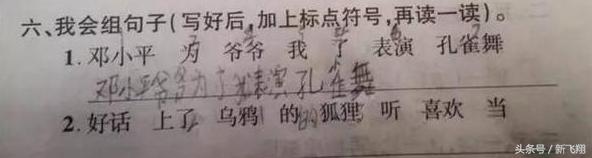 六、我会组句子(写好后,加上标点符号,再读一读)。
1. 邓小平 为 爷爷 我 了 表演 孔雀舞
邓小平爷爷为了我表演孔雀舞
2. 好话 上了 乌鸦 的 狐狸 听 喜欢 当
头条号/新飞翔